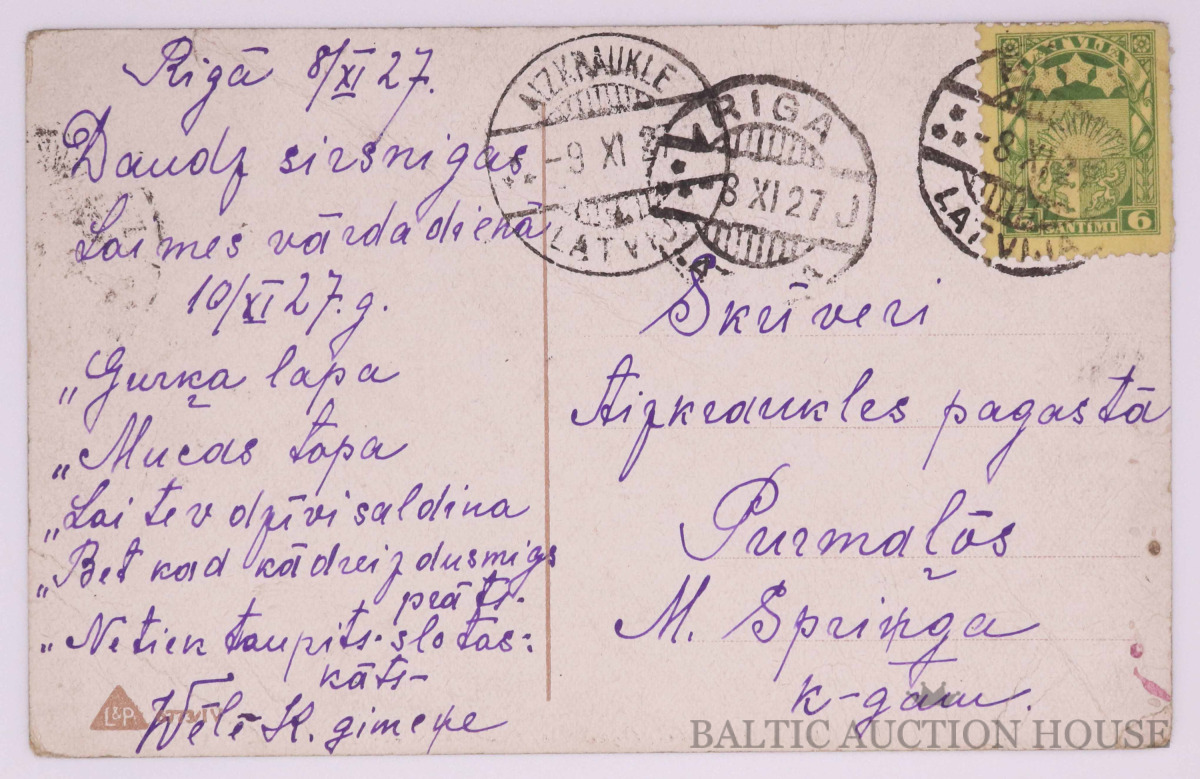 Rīgā 8/XI 27.
Daudz sirsnigas
Laimes vārda dienā
10/XI 27. g.
„Gurķa lapa
„Mucas tapa
„Lai tev dzīvi saldina
„Bet kad kādreiz dusmigs
prāts-
„Netiek taupits-slotas-
kāts-
Wēlē K. gimeņe
L&P.
AIZKRAUKLE
-9 XI 27
LATVIJA
RIGA
-8 XI 27 J
LATVIJA
-8 XI
LATVIJA
6
SANTIMI
Skrīveri
Aizkraukles pagastā
Purmaļōs
M. Spriņga
k-gam.
BALTIC AUCTION HOUSE